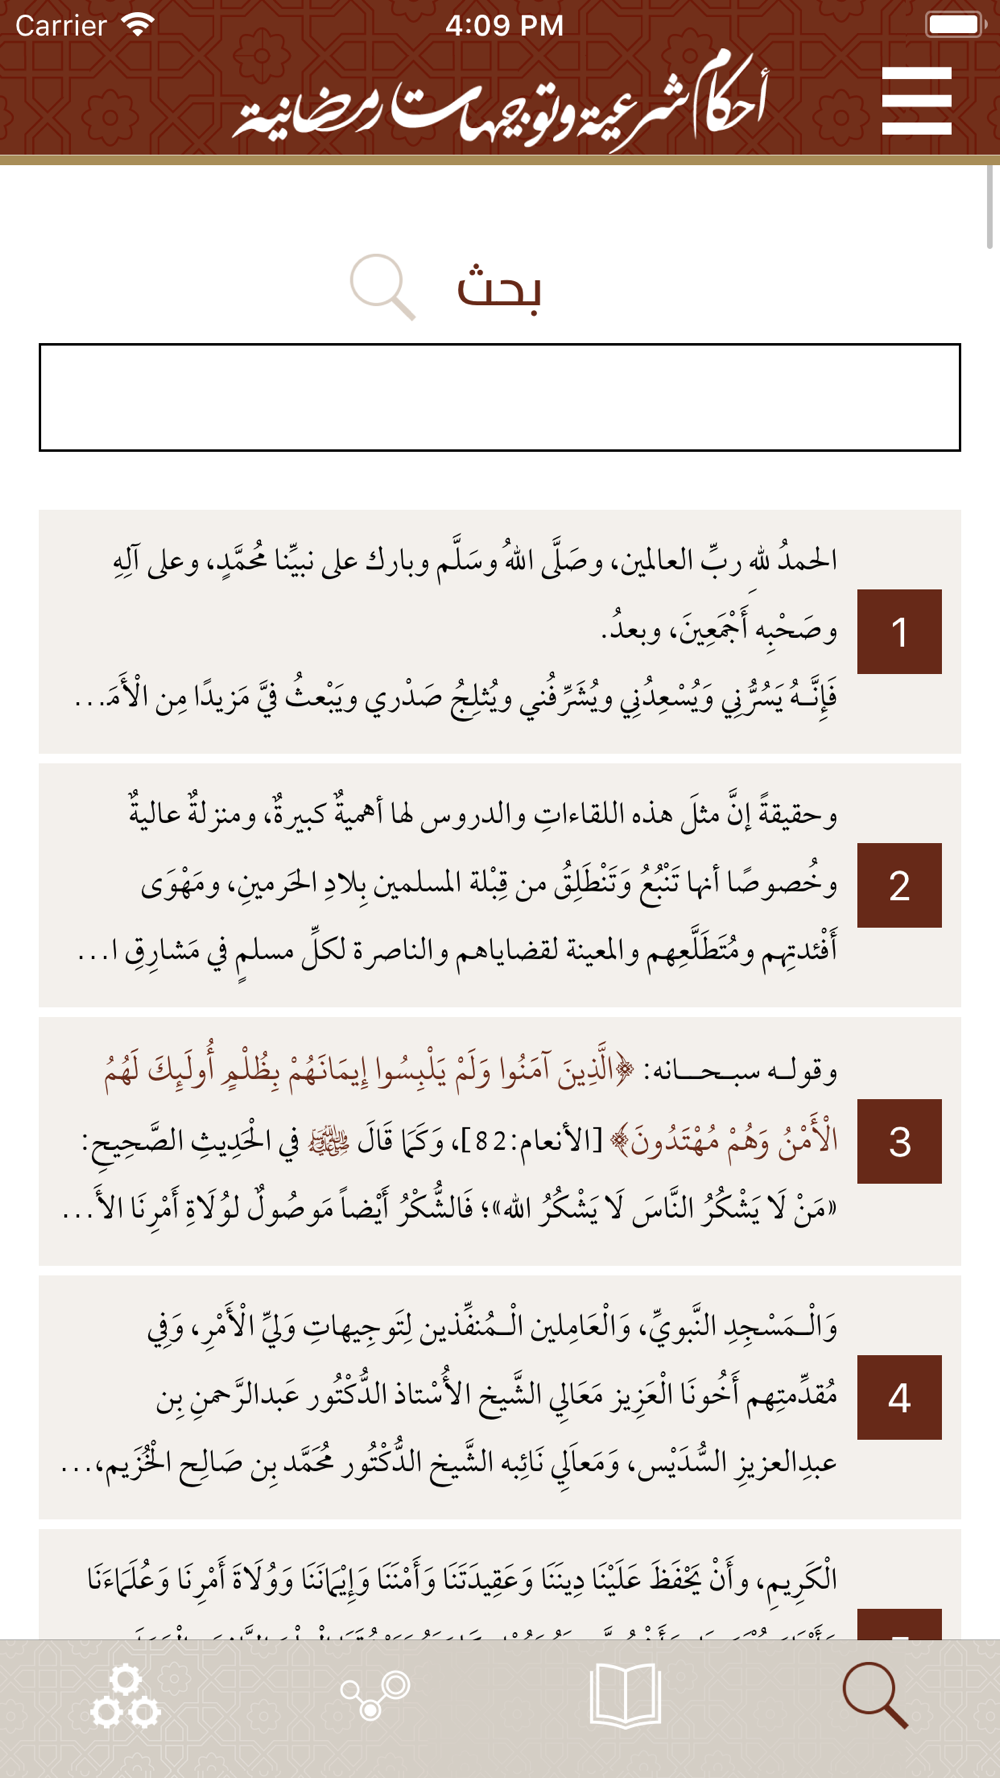 Carrier
4:09 PM
أحكام شرعية وتوجيهات رمضانية
بحث
1
الحمدُ للهِ ربِّ العالمين، وصَلَّى اللهُ وسَلَّم وبارك على نبيِّنا مُحمَّدٍ، وعلى آلِهِ
وصَحْبِه أَجْمَعِينَ، وبعدُ.
فَإِنَّـهُ يَسُرُّنِي وَيُسْعِدُنِي ويُشَرِّفُني ويُثلِجُ صَدْري ويَبْعثُ فيَّ مَزيدًا مِن الْأَمَـ...
2
وحقيقةً إنَّ مثلَ هذه اللقاءاتِ والدروس لها أهميةٌ كبيرةٌ، ومنزلةٌ عاليةٌ
وخُصوصًا أنها تَنْبُعُ وَتَنْطَلِقُ من قِبْلة المسلمين بِلادِ الحَرمينِ، ومَهْوَى
أَفْئدتِهم ومُتَطَلَّعِهم والمعينة لقضاياهم والناصرة لكلِّ مسلمٍ في مَشارِقِ ا...
3
وقولـه سبـحـــانه: ﴿الَّذِينَ آمَنُوا وَلَمْ يَلْبِسُوا إِيمَانَهُمْ بِظُلْمٍ أُولَئِكَ لَهُمُ
الْأَمْنُ وَهُمْ مُهْتَدُونَ﴾ [الأنعام:82]، وَكَمَا قَالَ ﷺ في الْحَدِيثِ الصَّحِيحِ:
«مَنْ لَا يَشْكُرُ النَّاسَ لَا يَشْكُرُ الله»؛ فَالشُّكْرُ أَيْضاً مَوصُولٌ لوُلَاةِ أَمْرِنَا الأَ...
4
وَالْـمَسْجِدِ النَّبويِّ، وَالْعَامِلين الْـمُنفِّذين لِتَوجِيهاتِ وَليِّ الْأَمْرِ، وَفِي
مُقدِّمتِهم أَخُونَا الْعَزِيز مَعَالِي الشَّيخ الأُسْتاذ الدُّكْتُور عَبدالرَّحمنِ بِن
عبدِالعزيزِ السُّدَيْس، وَمَعَالَي نَائِبه الشَّيخ الدُّكْتُور مُحَمَّد بِن صَالِح الْخُزَيم،...
الْكَرِيمِ، وأَنْ يَحْفَظَ عَلَيْنَا دِينَنَا وَعَقِيدَتَنَا وَأَمْنَنَا وَإِيْمَانَنَا وَوُلَاةَ أَمْرِنَا وَعُلَمَاءَنَا